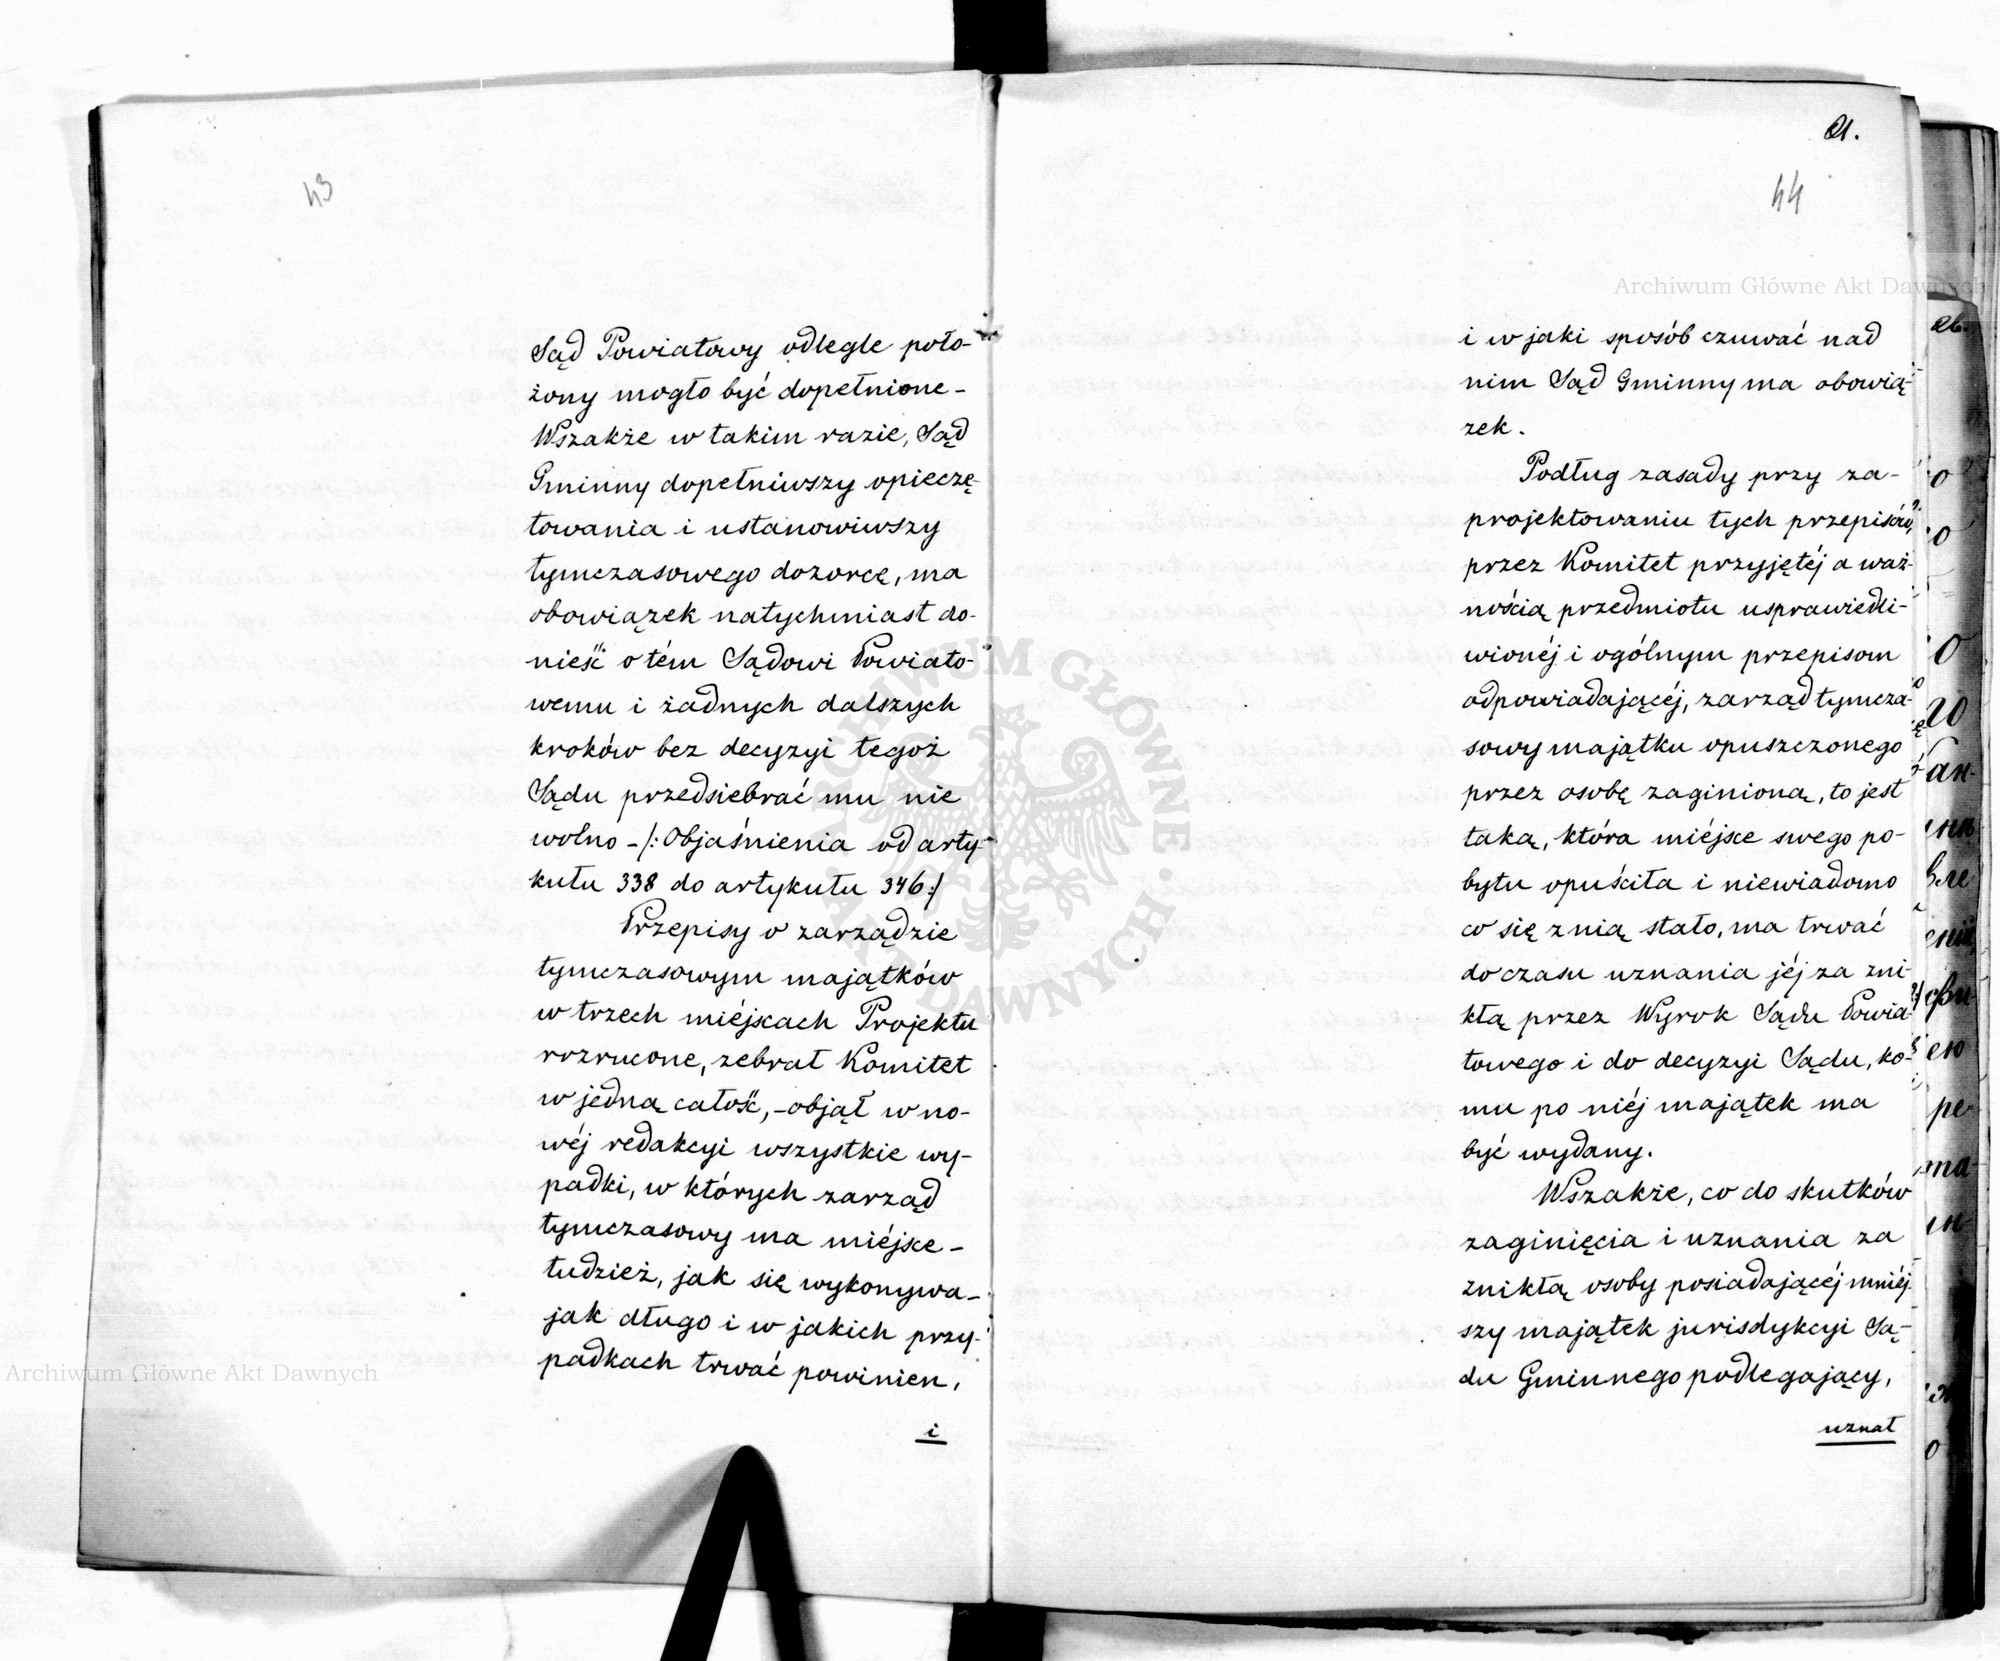 43
Sąd Powiatowy odlegle poło-
żony mogło być dopełnione -
Wszakże w takim razie, Sąd
Gminny dopełniwszy opieczę-
towania i ustanowiwszy
tymczasowego dozorcę, ma
obowiązek natychmiast do-
nieść o tém Sądowi Powiato-
wemu i żadnych dalszych
kroków bez decyzyi tegoż
Sądu przedsiebrać mu nie
wolno - /: Objaśnienia od arty-
kułu 338 do artykułu 346 :/
Przepisy o zarządzie
tymczasowym majątków
w trzech miéjscach Projektu
rozrucone, zebrał Komitet
w jedną całość, - objął w no-
wéj redakcyi wszystkie wy-
padki, w których zarząd
tymczasowy ma miéjsce -
tudzież, jak się wykonywa -
jak długo i w jakich przy-
padkach trwać powinien,
i
21.
44
i w jaki sposób czuwać nad
nim Sąd Gminny ma obowią-
zek.
Podług zasady przy za-
projektowaniu tych przepisów,
przez Komitet przyjętéj a waż-
nością przedmiotu usprawiedli-
wionéj i ogólnym przepisom
odpowiadającéj, zarząd tymcza-
sowy majątku opuszczonego
przez osobę zaginioną, to jest
taką, która miéjsce swego po-
bytu opuściła i niewiadomo
co się z nią stało, ma trwać
do czasu uznania jéj za zni-
kłą przez Wyrok Sądu Powia-
towego i do decyzyi Sądu, ko-
mu po niéj majątek ma
być wydany.
Wszakże, co do skutków
zaginięcia i uznania za
znikłą osoby posiadającéj mniéj-
szy majątek jurisdykcyi Są-
du Gminnego podlegający,
uznał
Archiwum Główne Akt Dawnych
Archiwum Główne Akt Dawnych
ARCHIWUM GŁÓWNE AKT DAWNYCH